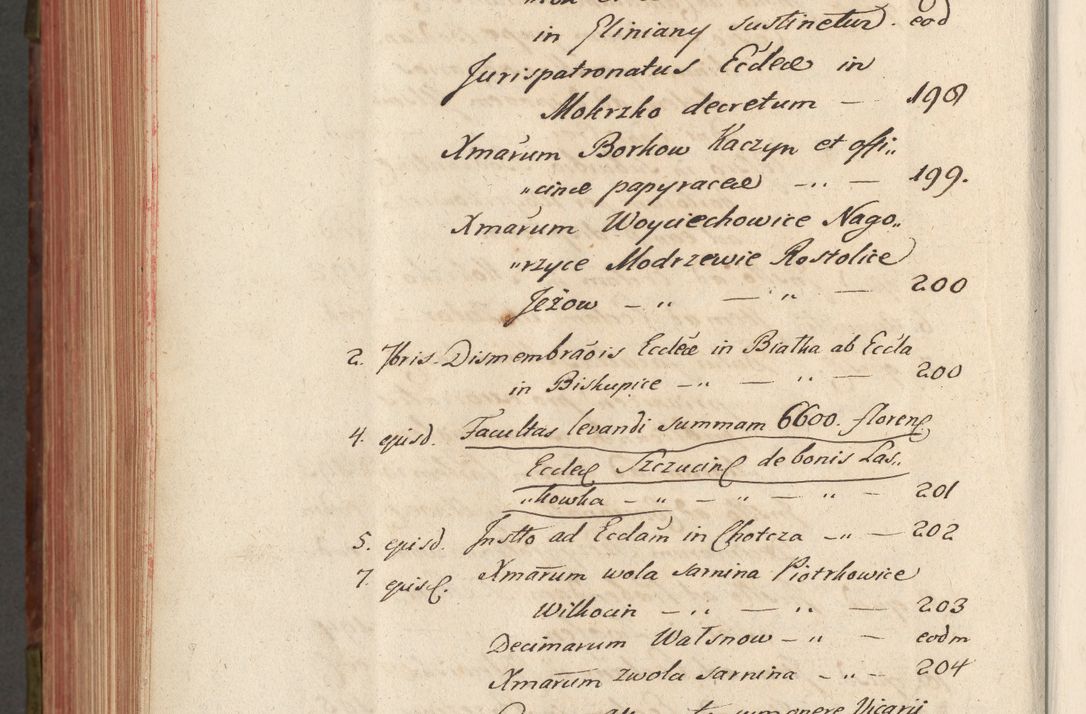 in Gliniany sustinetur. eod
Jurispatronatus Ecclæ in
Mokrzko decretum — 198
Xmarum Borkow Kaczyn et offi„
„cinæ papyraceæ — „ — 199.
Xmarum Woyciechowice Nago„
„rzyce Modrzewie Rostolice
Jeżow — „ — „ — 200
2. 7bris. Dismembraõis Ecclæ in Biatka ab Eccla
in Biskupice — „ — „ — 200
4. ejusd. Facultas levandi summam 6600. floren
Eccleæ Szczucin de bonis Las„
„kowka — „ — „ — „ — 201
5. ejusd. Instto ad Ecclam in Chotcza — „ — 202
7. ejusd. Xmarum wola sarnina Piotrkowice
Wilkocin — „ — „ — 203
Decimarum Watsnow — „ — eodm
Xmarum zwola sarnina — „ — 204
Vicarii